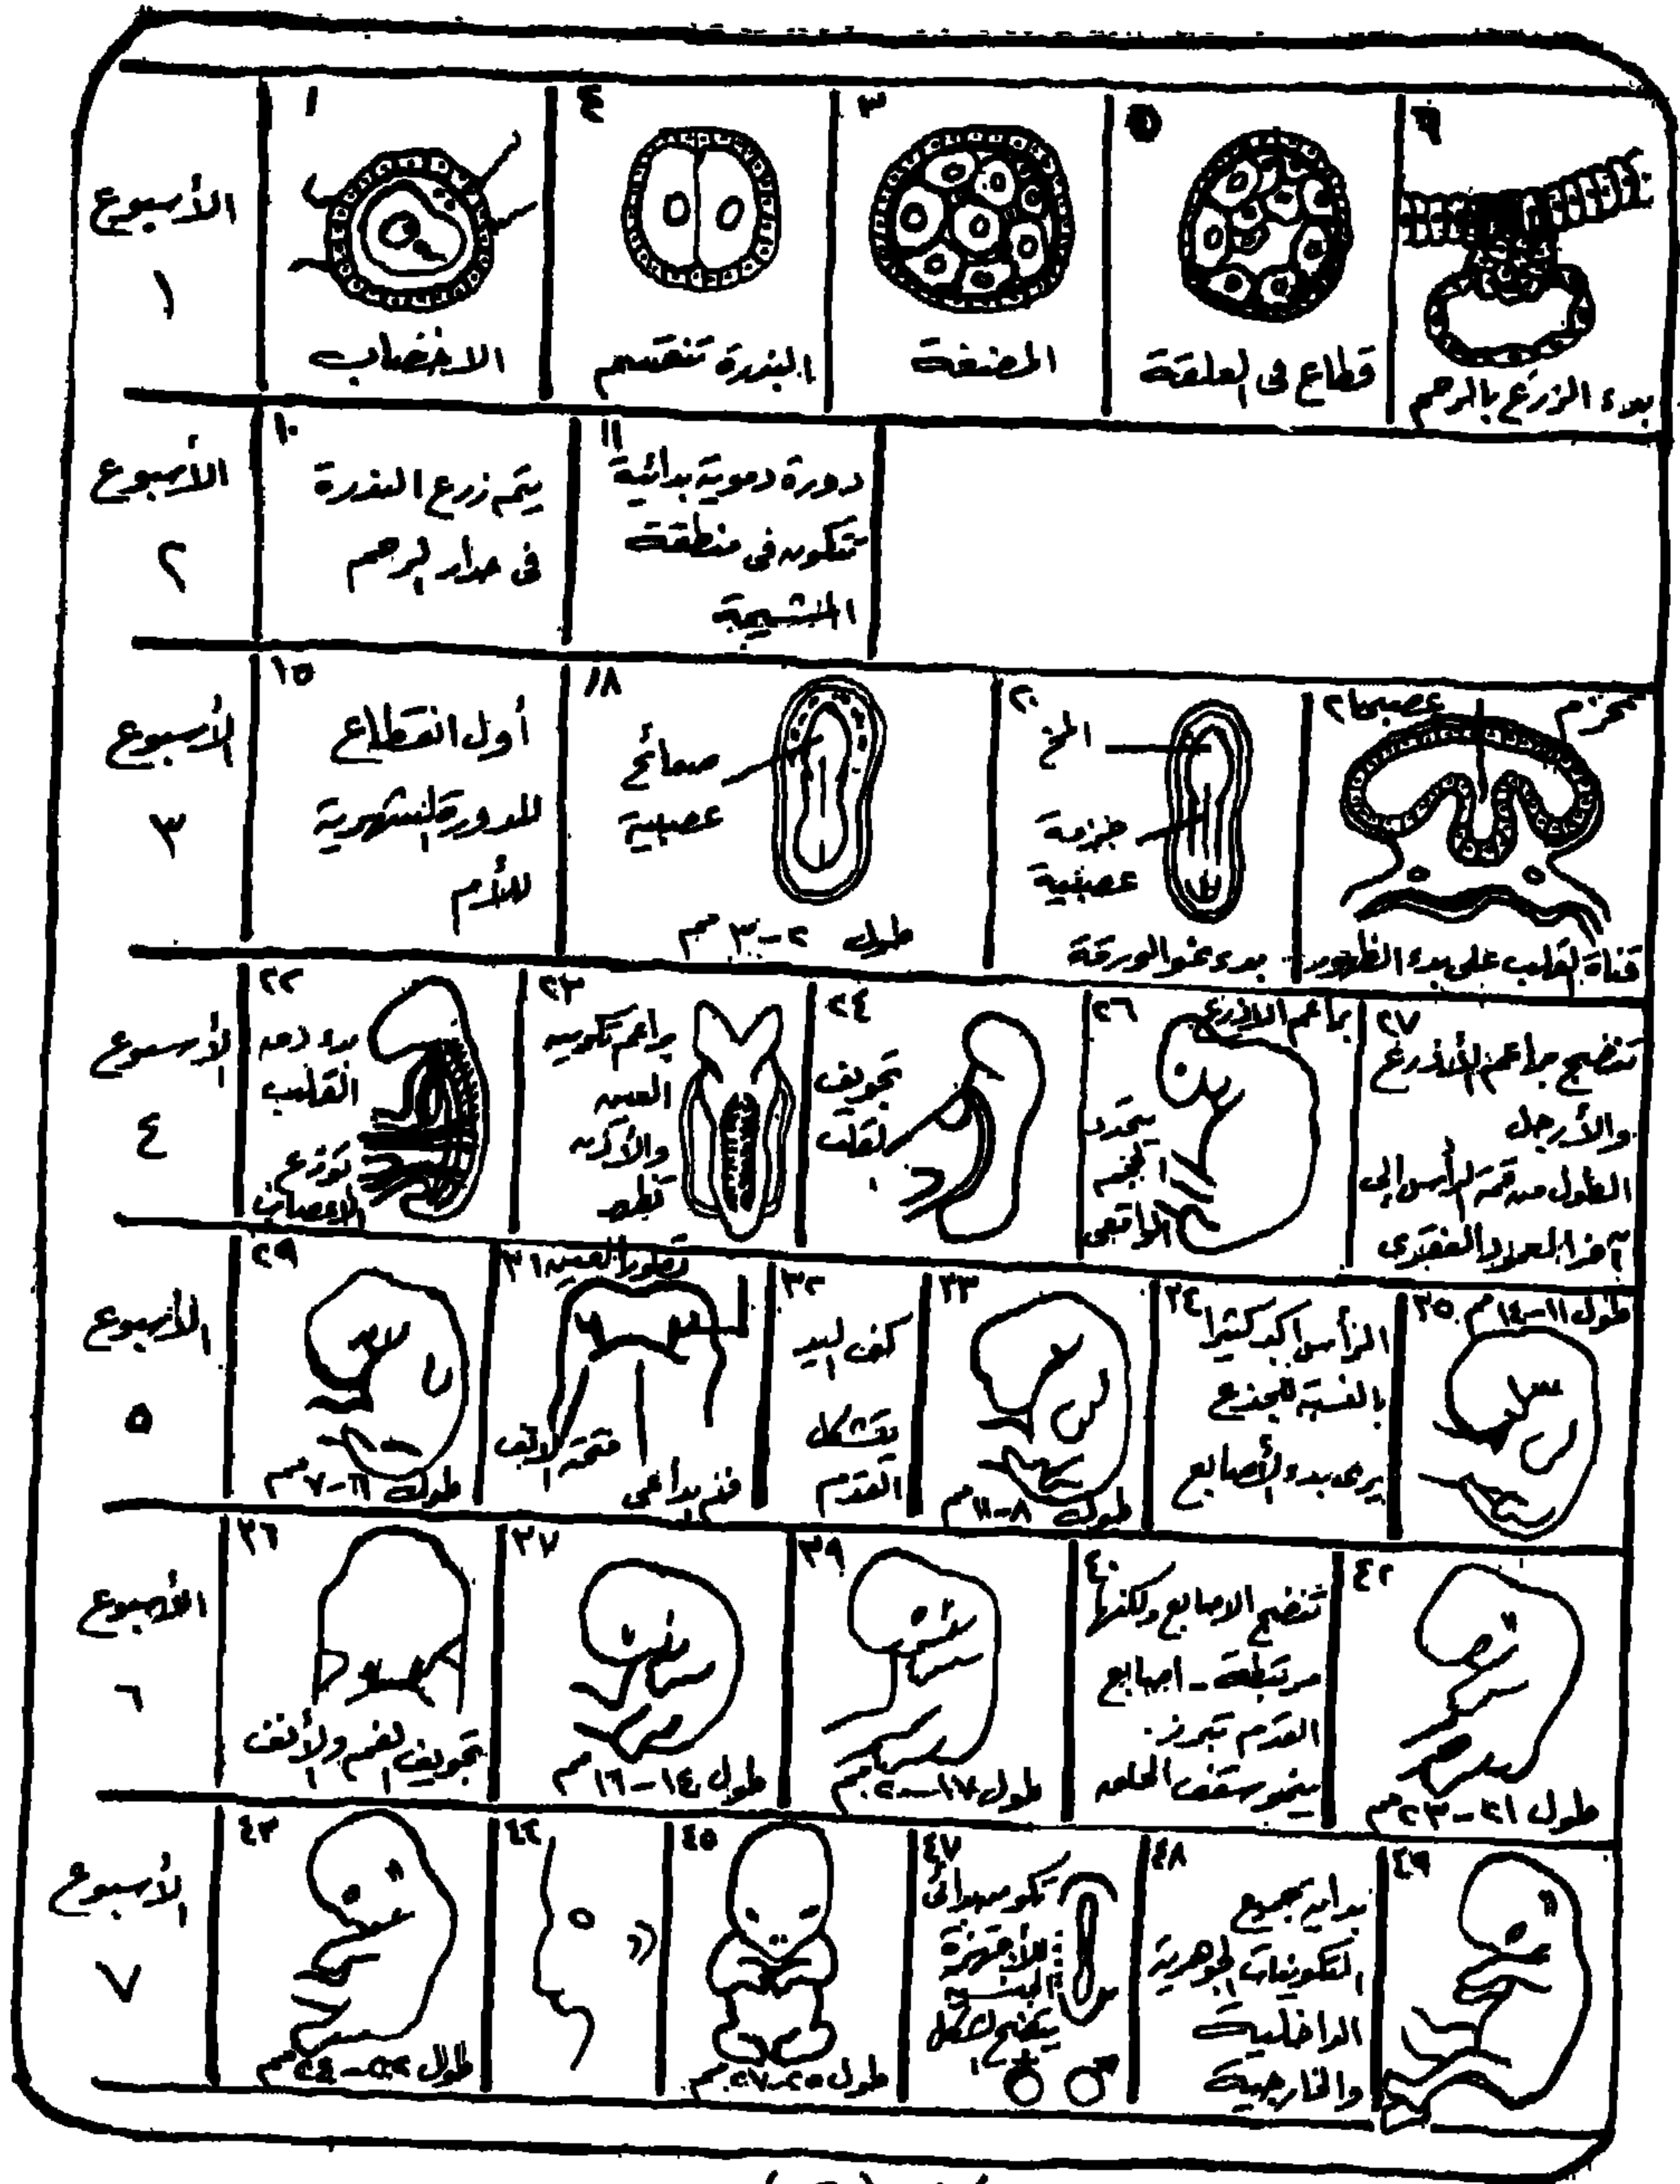 الأسبوع
١
١
الاخضاب
٤
البذرة تنقسم
٣
المضغة
٥
قطاع فى العلقة
٦
بدء الزرع بالرحم
الأسبوع
٢
١٠
يتم زرع البذرة
فى جدار الرحم
١١
دورة دموية بدائية
تتكون فى منطقة
المشيمة
الأسبوع
٣
١٥
أول انقطاع
للدورة الشهرية
للأم
١٨
صفائح
عصبية
طول ٢-٣ مم
٢٠
المخ
حزمة
عصبية
بدء نمو الورقة
تحزم عصبى ٢١
قناة القلب على بدء الظهور
الأسبوع
٤
٢٢
بدء دق
القلب
توزع
الاعصاب
٢٣
براعم تكوين
العين
والأذن
تظهر
٢٤
تجويف
القلب
٢٦
براعم الاذرع
يتحدد
الحجم
الواقعى
٢٧
تتضح براعم الأذرع
والأرجل
الطول من قمة الرأس إلى
آخر العمود الفقرى
الأسبوع
٥
٢٩
طول ٦-٧ مم
تطور العين ٣١
فتحة الانف
فم بدائى
٣٢
كف اليد
يتشكل
القدم
٣٣
طول ٨-١١ مم
٣٤
الرأس اكبر كثيرا
بالنسبة للجذع
يرى بدء الأصابع
٣٥
طول ١١-١٤ مم
الأسبوع
٦
٣٦
تجويف الفم والأنف
٣٧
طول ١٤-١٦ مم
٣٩
طول ١٧-٢٠ مم
٤٠
تتضح الاصابع ولكنها
مرتبطة - اصابع
القدم تبرز.
ينمو سقف الحلق
٤٢
طول ٢١-٢٣ مم
الأسبوع
٧
٤٣
طول
٤٤
٤٥
طول ٢٥-٢٧ مم
٤٧
تكوين بدائى
للأجهزة
يتضح الشكل
٤٨
بداية جميع
التكوينات الجوهرية
الداخلية
والخارجية
٤٩